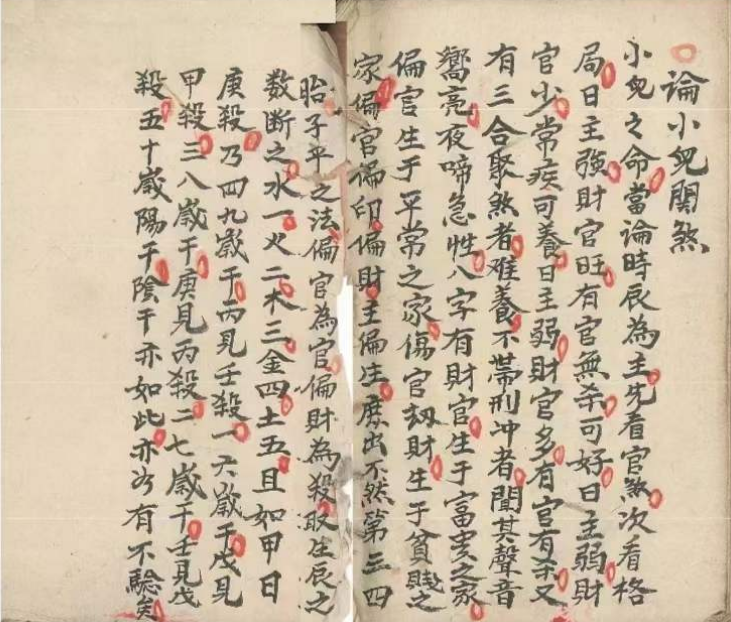 論小皃関煞
小皃之命當論時辰為主先看官煞次看格
局日主強財官旺有官無杀可好日主弱財
官少常疾可養日主弱財官多有官有杀又
有三合聚煞者难養不带刑冲者聞其聲音
嚮亮夜啼急性八字有財官生于富贵之家
偏官生于平常之家傷官刼財生于貧賎之
家偏官偏印偏財主偏生庻出不然第三四
胎子平之法偏官為官偏財為殺取生辰之
数断之水一火二木三金四土五且如甲日
庚殺乃四九嵗干丙見壬殺一六嵗干戊見
甲殺三八嵗干庚見丙殺二七嵗干壬見戊
殺五十嵗陽干陰干亦如此亦有不驗矣